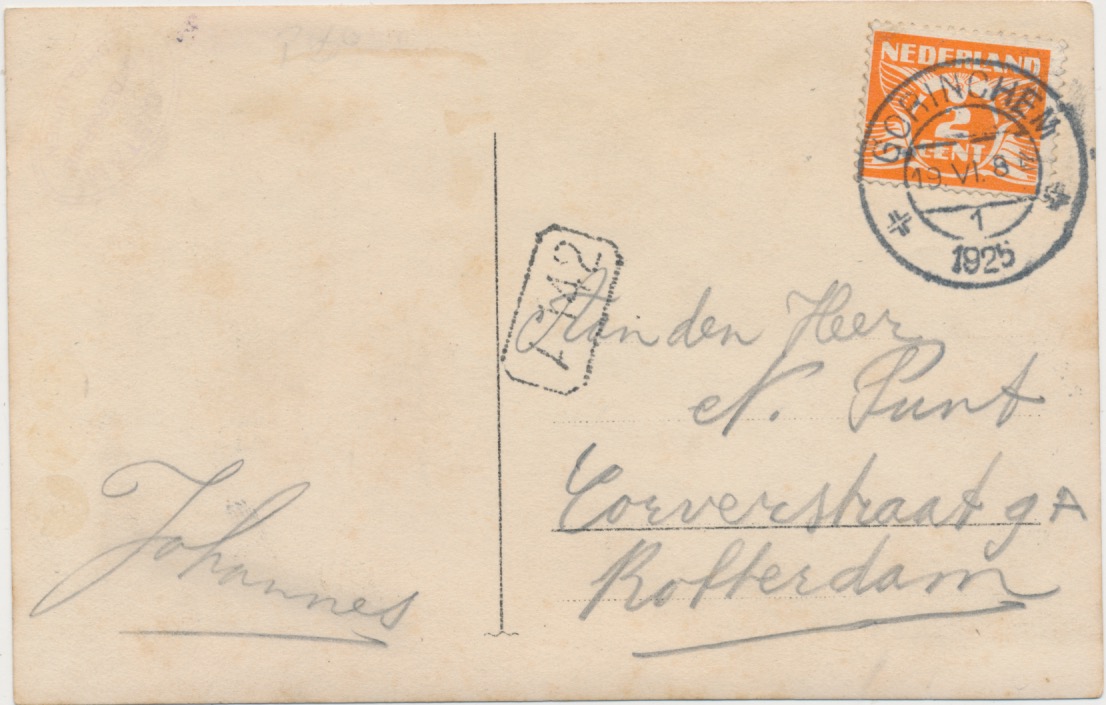 NEDERLAND
2
CENT
GORINCHEM
19.VI.8
1
1925
1142
Aan den Heer
N. Punt
Corverstraat 9A
Rotterdam
Johannes